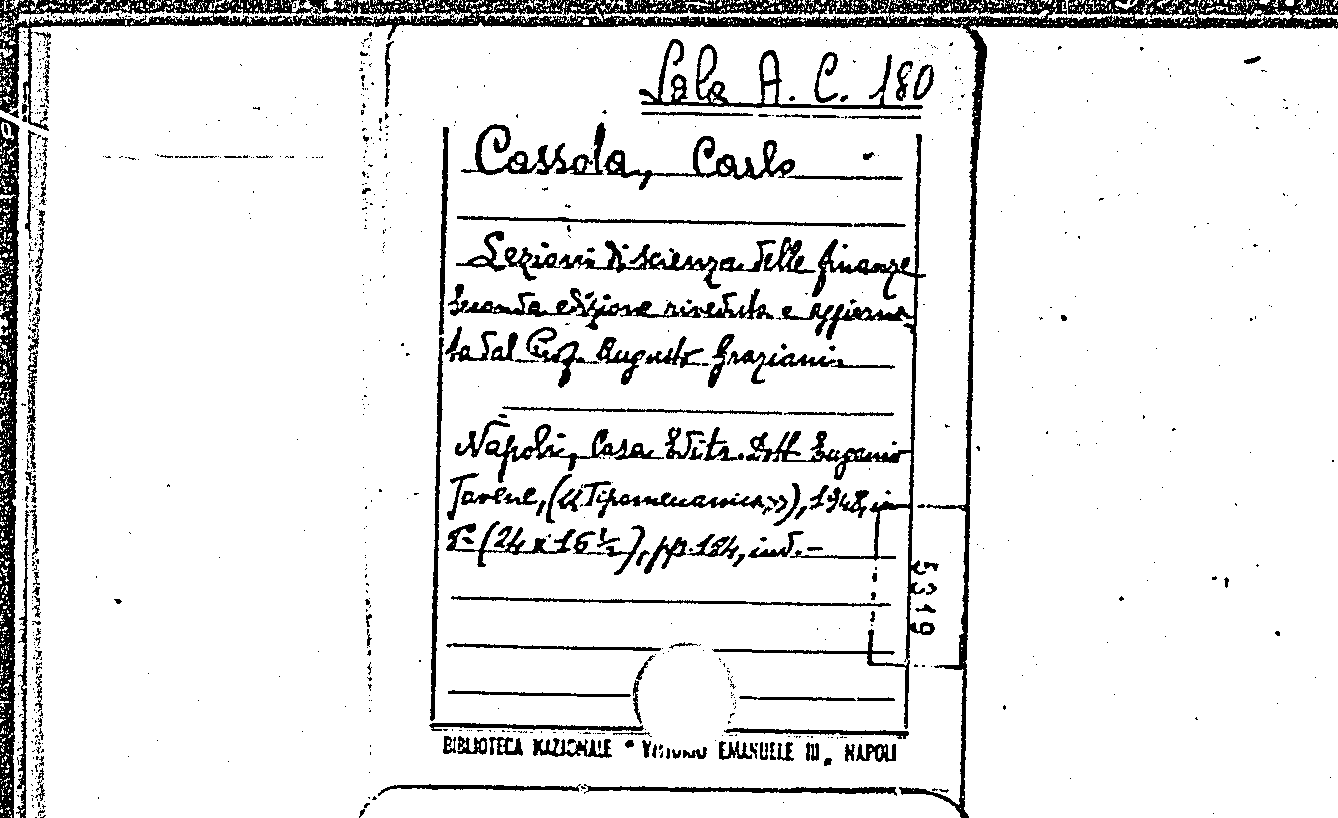 Sala A. C. 180
Cassola, Carlo
Lezioni di scienza delle finanze
Seconda edizione riveduta e aggiorna-
ta dal Prof. Augusto Graziani.
Napoli, Casa Editr. Dott. Eugenio
Jovene, (« Tipomeccanica »), 1948, in
8° (24 x 16 ½), pp. 184, ind. -
5319
BIBLIOTECA NAZIONALE " VITTORIO EMANUELE III „ NAPOLI